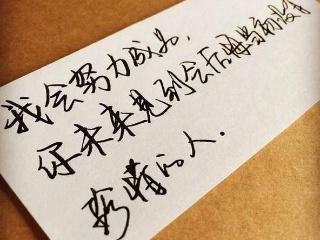 我会努力成为,
你未来见到会后悔当初没有
珍惜的人.